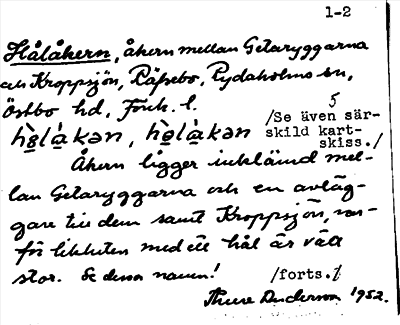 1-2
Hålåkern, åkern mellan Getaryggarna
och Kroppsjön, Räfsebo, Rydaholms sn,
Östbo hd, Jönk. l.
5
/Se även sär-
hò̤là̤kən, hò̤là̤kən skild kart-
skiss./
Åkern ligger inklämd mel-
lan Getaryggarna och en avläg-
gare till dem samt Kroppsjön, var-
för likheten med ett hål är väl
stor. Se dessa namn!
/forts./
Thure Andersson 1952.